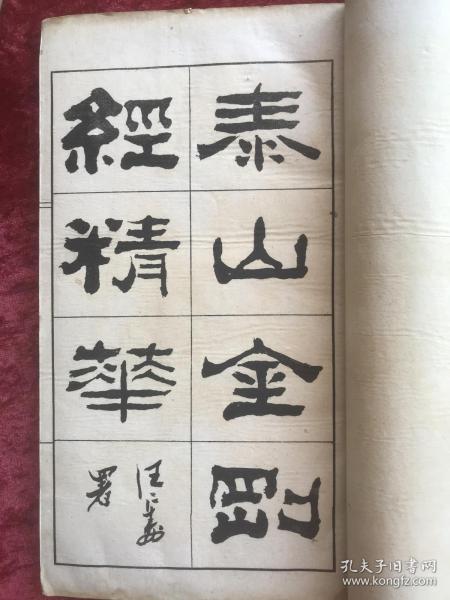 泰山金剛
經精華
汪仁壽
署
孔夫子旧书网
www.kongfz.com